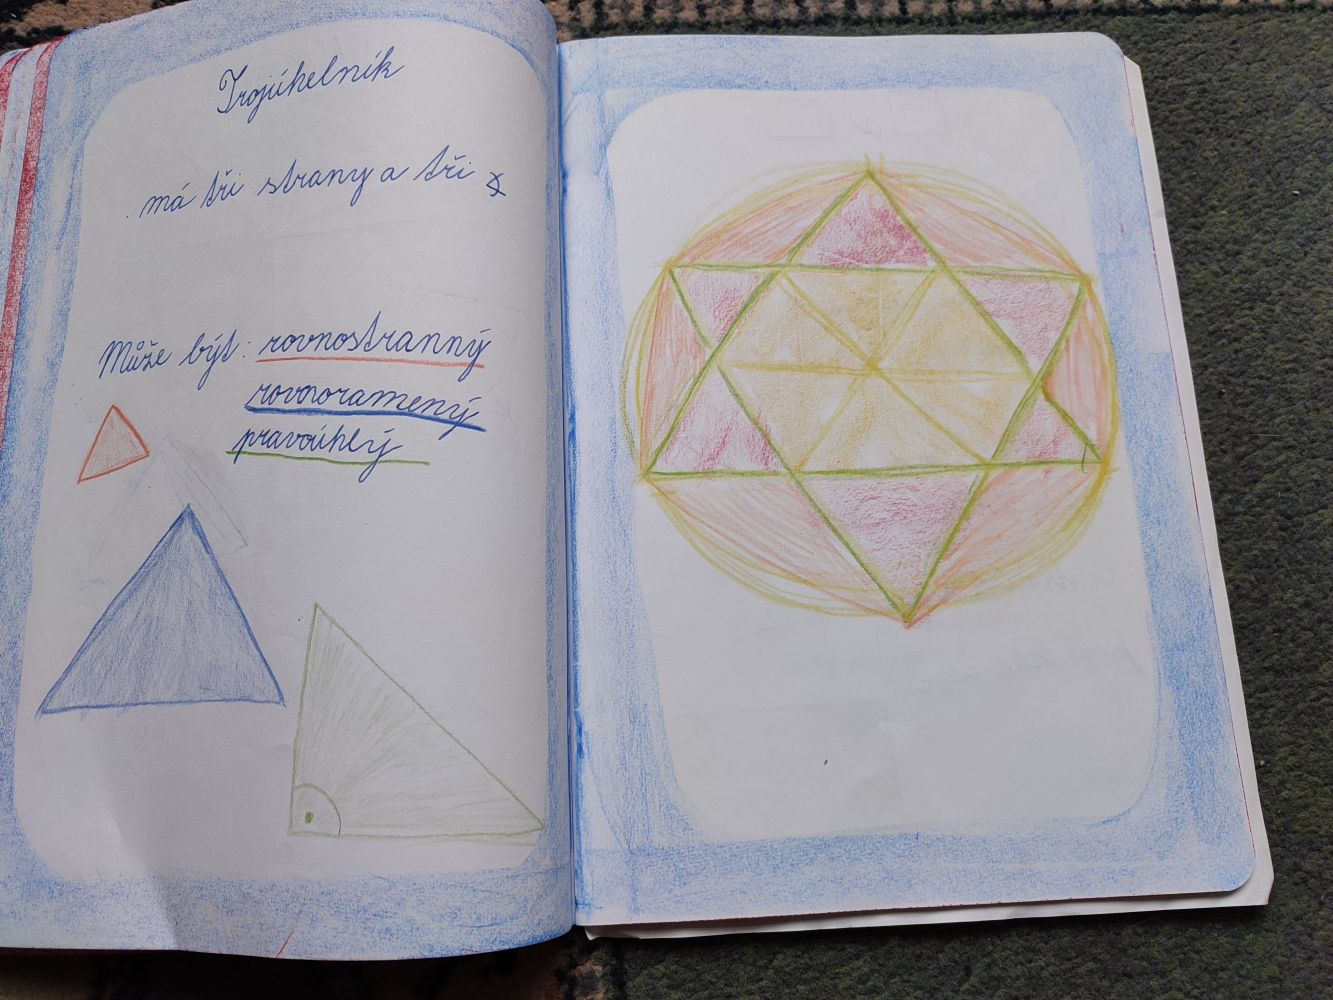 Trojúhelník
má tři strany a tři
Může být: rovnostranný
rovnoramený
pravoúhlý